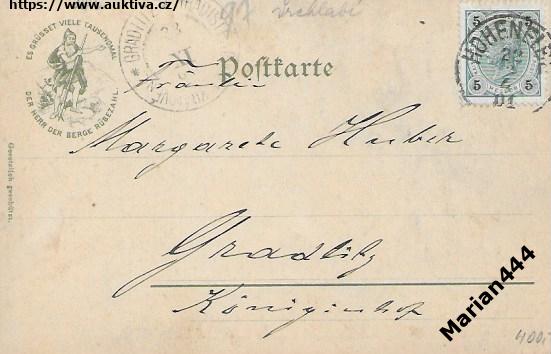 https://www.auktiva.cz/
97 Vrchlabí
ES GRÜSSET VIELE TAUSENDMAL
DER HERR DER BERGE RÜBEZAHL.
Gesetzlich geschützt.
GRADLITZ
Postkarte
5 5
5 5
HOHENELBE
01
Fräulein
Margarete Huber
Gradlitz
Königinhof
Marian444
400,-